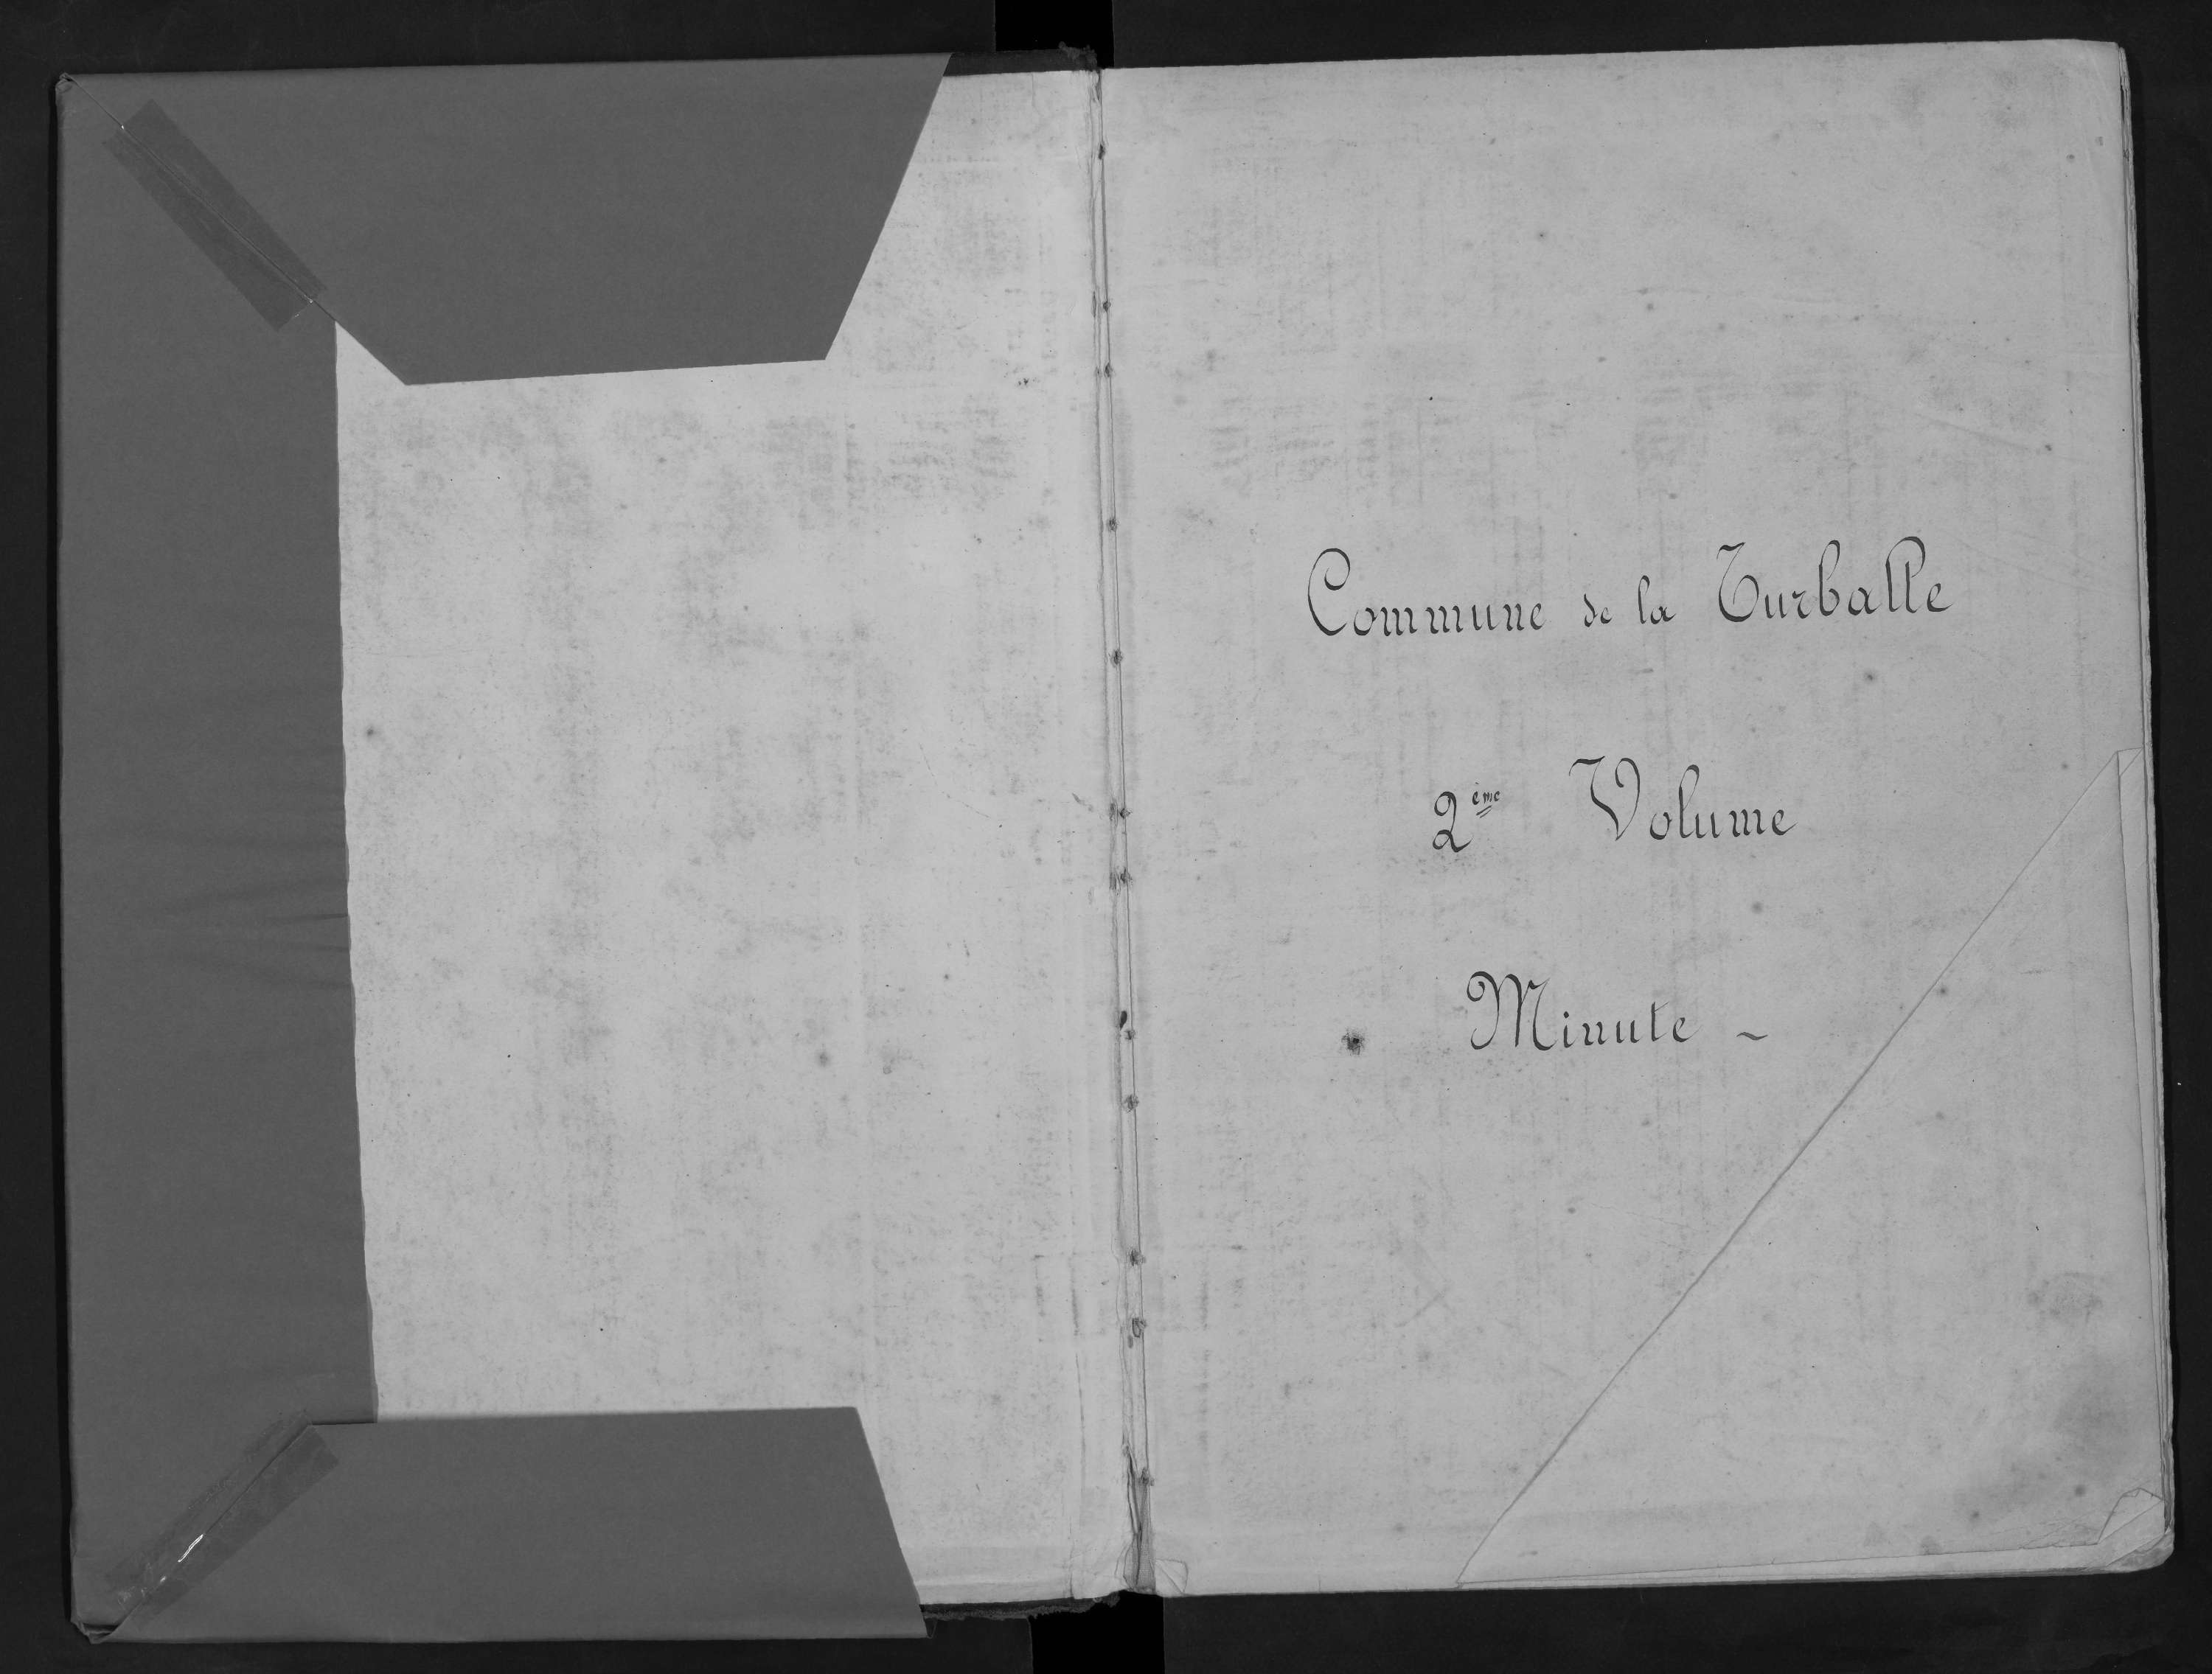 Commune de la Turballe
2ème Volume
Minute -